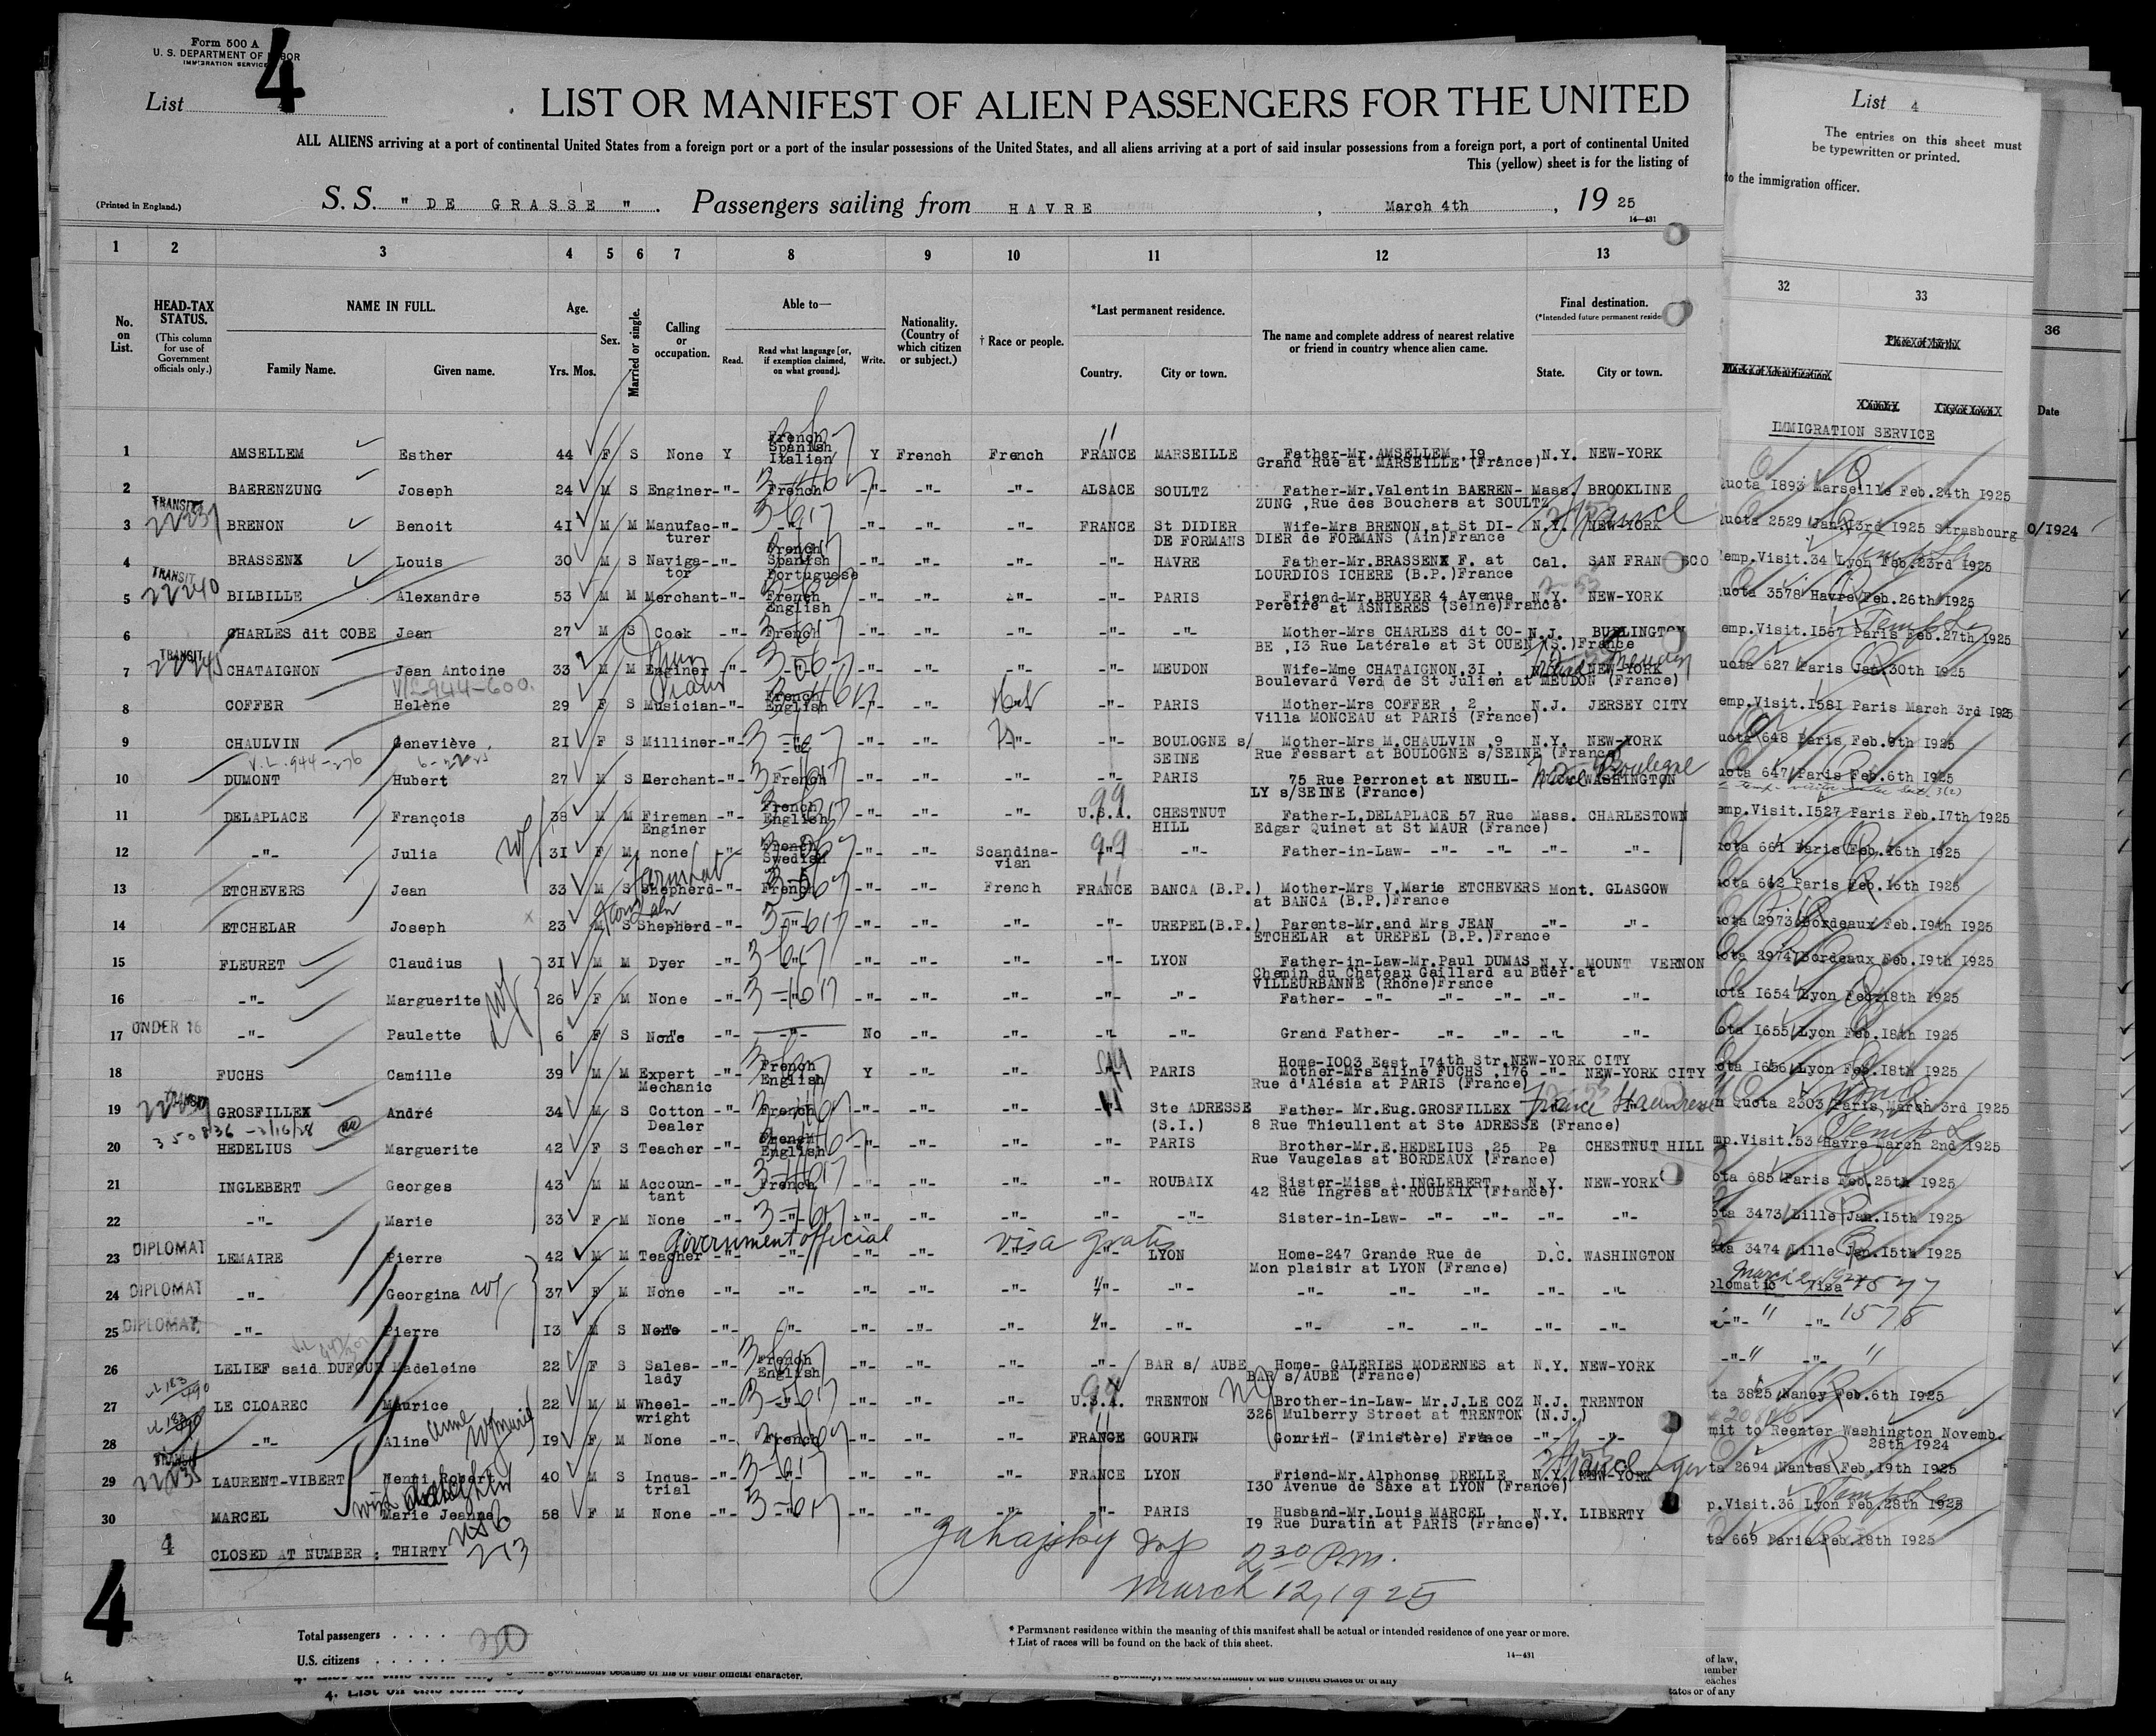 Form 500 A
U. S. DEPARTMENT OF LABOR
IMMIGRATION SERVICE
4
List
LIST OR MANIFEST OF ALIEN PASSENGERS FOR THE UNITED
ALL ALIENS arriving at a port of continental United States from a foreign port or a port of the insular possessions of the United States, and all aliens arriving at a port of said insular possessions from a foreign port, a port of continental United
This (yellow) sheet is for the listing of
(Printed in England.)
S. S. " DE GRASSE " . Passengers sailing from HAVRE , March 4th , 19 25
14—431
1 2 3 4 5 6 7 8 9 10 11 12 13
No. on List.
HEAD-TAX STATUS.
(This column for use of Government officials only.)
NAME IN FULL.
Family Name. Given name.
Age.
Yrs. Mos.
Sex.
Married or single.
Calling or occupation.
Able to—
Read. Read what language [or, if exemption claimed, on what ground]. Write.
Nationality. (Country of which citizen or subject.)
† Race or people.
*Last permanent residence.
Country. City or town.
The name and complete address of nearest relative or friend in country whence alien came.
Final destination.
(*Intended future permanent reside
State. City or town.
1 AMSELLEM Esther 44 F S None Y French Spanish Italian Y French French FRANCE MARSEILLE Father-Mr.AMSELLEM ,19 , N.Y. NEW-YORK
Grand Rue at MARSEILLE (France)
2 BAERENZUNG Joseph 24 M S Enginer -"- French -"- -"- -"- ALSACE SOULTZ Father-Mr.Valentin BAEREN- Mass. BROOKLINE
ZUNG ,Rue des Bouchers at SOULTZ
TRANSIT
22237
3 BRENON Benoit 41 M M Manufac- -"- -"- -"- -"- -"- FRANCE St DIDIER Wife-Mrs BRENON at St DI- N.Y. NEW-YORK
turer DE FORMANS DIER de FORMANS (Ain)France
4 BRASSENX Louis 30 M S Naviga- -"- French Spanish Portuguese -"- -"- -"- -"- HAVRE Father-Mr.BRASSENX F. at Cal. SAN FRAN SCO
tor LOURDIOS ICHERE (B.P.)France
TRANSIT
22240
5 BILBILLE Alexandre 53 M M Merchant -"- French English -"- -"- -"- -"- PARIS Friend-Mr.BRUYER 4 Avenue N.Y. NEW-YORK
Pereire at ASNIERES (Seine)France
6 CHARLES dit COBE Jean 27 M S Cook -"- French -"- -"- -"- -"- -"- Mother-Mrs CHARLES dit CO- N.J. BURLINGTON
BE ,13 Rue Latérale at St OUEN (S.)France
TRANSIT
22245
7 CHATAIGNON Jean Antoine 33 M M Enginer -"- -"- -"- -"- -"- -"- MEUDON Wife-Mme CHATAIGNON,31 , NEW-YORK
Boulevard Verd de St Julien at MEUDON (France)
V/L-944-600.
8 COFFER Helène 29 F S Musician -"- French English -"- -"- -"- PARIS Mother-Mrs COFFER , 2 , N.J. JERSEY CITY
Villa MONCEAU at PARIS (France)
9 CHAULVIN Geneviève 21 F S Milliner -"- -"- -"- -"- -"- -"- BOULOGNE s/ Mother-Mrs M.CHAULVIN ,9 N.Y. NEW-YORK
SEINE Rue Fessart at BOULOGNE s/SEINE (France)
V.L.944-276
10 DUMONT Hubert 27 M S Merchant -"- French -"- -"- -"- -"- PARIS 75 Rue Perronet at NEUIL- WASHINGTON
LY s/SEINE (France)
11 DELAPLACE François 38 M M Fireman -"- French English -"- -"- -"- U.S.A. CHESTNUT Father-L.DELAPLACE 57 Rue Mass. CHARLESTOWN
Enginer HILL Edgar Quinet at St MAUR (France)
12 -"- Julia 31 F M none -"- French Swedish -"- -"- Scandina-vian -"- -"- Father-in-Law- -"- -"- -"- -"-
13 ETCHEVERS Jean 33 M S Shepherd -"- French -"- -"- French FRANCE BANCA (B.P.) Mother-Mrs V.Marie ETCHEVERS Mont. GLASGOW
at BANCA (B.P.)France
14 ETCHELAR Joseph 23 M S Shepherd -"- -"- -"- -"- -"- -"- UREPEL(B.P.) Parents-Mr.and Mrs JEAN -"- -"-
ETCHELAR at UREPEL (B.P.)France
15 FLEURET Claudius 31 M M Dyer -"- -"- -"- -"- -"- -"- LYON Father-in-Law-Mr.Paul DUMAS N.Y. MOUNT VERNON
Chemin du Chateau Gaillard au Buer at
VILLEURBANNE (Rhône)France
16 -"- Marguerite 26 F M None -"- -"- -"- -"- -"- -"- -"- Father- -"- -"- -"- -"- -"-
UNDER 16
17 -"- Paulette 6 F S None -"- -"- No -"- -"- -"- -"- Grand Father- -"- -"- -"- -"-
Home-1003 East 174th Str.NEW-YORK CITY
18 FUCHS Camille 39 M M Expert -"- French English Y -"- -"- -"- PARIS Mother-Mrs Aline FUCHS ,176 -"- NEW-YORK CITY
Mechanic Rue d'Alésia at PARIS (France)
19 GROSFILLEX André 34 M S Cotton -"- French -"- -"- -"- -"- Ste ADRESSE Father- Mr.Eug.GROSFILLEX
Dealer (S.I.) 8 Rue Thieullent at Ste ADRESSE (France)
350836 -3/16/38
20 HEDELIUS Marguerite 42 F S Teacher -"- French English -"- -"- -"- -"- PARIS Brother-Mr.E.HEDELIUS ,25 Pa CHESTNUT HILL
Rue Vaugelas at BORDEAUX (France)
21 INGLEBERT Georges 43 M M Accoun- -"- French -"- -"- -"- -"- ROUBAIX Sister-Miss A.INGLEBERT , N.Y. NEW-YORK
tant 42 Rue Ingres at ROUBAIX (France)
22 -"- Marie 33 F M None -"- -"- -"- -"- -"- -"- -"- Sister-in-Law- -"- -"- -"- -"-
Government official visa gratis
DIPLOMAT
23 LEMAIRE Pierre 42 M M Teacher -"- -"- -"- -"- -"- -"- LYON Home-247 Grande Rue de D.C. WASHINGTON
Mon plaisir at LYON (France)
24 DIPLOMAT -"- Georgina 37 F M None -"- -"- -"- -"- -"- -"- -"- -"- -"- -"- -"- -"-
25 DIPLOMAT -"- Pierre 13 M S None -"- -"- -"- -"- -"- -"- -"- -"- -"- -"- -"- -"-
26 LELIEF said DUFOUR Madeleine 22 F S Sales- -"- French English -"- -"- -"- -"- BAR s/ AUBE Home- GALERIES MODERNES at N.Y. NEW-YORK
lady BAR s/AUBE (France)
27 LE CLOAREC Maurice 22 M M Wheel- -"- -"- -"- -"- -"- U.S.A. TRENTON Brother-in-Law- Mr.J.LE COZ N.J. TRENTON
wright 326 Mulberry Street at TRENTON (N.J.)
28 -"- Aline 19 F M None -"- French -"- -"- -"- FRANCE GOURIN Gourin- (Finistère) France -"- -"-
29 LAURENT-VIBERT Henri Robert 40 M S Indus- -"- -"- -"- -"- -"- FRANCE LYON Friend-Mr.Alphonse DRELLE N.Y. NEW-YORK
trial 130 Avenue de Saxe at LYON (France)
30 MARCEL Marie Jeanne 58 F M None -"- -"- -"- -"- -"- -"- PARIS Husband-Mr.Louis MARCEL , N.Y. LIBERTY
19 Rue Duratin at PARIS (France)
4 CLOSED AT NUMBER : THIRTY
2 30 P.M.
March 12, 1925
4
Total passengers . . . . 30
U.S. citizens . . . . .
* Permanent residence within the meaning of this manifest shall be actual or intended residence of one year or more.
† List of races will be found on the back of this sheet.
14—431
List 4
The entries on this sheet must
be typewritten or printed.
to the immigration officer.
32 33
36
Date
IMMIGRATION SERVICE
uota 1893 Marseille Feb.24th 1925
uota 2529 Jan.13rd 1925 Strasbourg 0/1924
emp.Visit.34 Lyon Feb.23rd 1925
uota 3578 Havre Feb.26th 1925
emp.Visit.1567 Paris Feb.27th 1925
uota 627 Paris Jan.30th 1925
emp.Visit.1581 Paris March 3rd 1925
uota 648 Paris Feb.6th 1925
uota 647 Paris Feb.6th 1925
emp.Visit.1527 Paris Feb.17th 1925
uota 661 Paris Feb.16th 1925
uota 662 Paris Feb.16th 1925
uota 2973 Bordeaux Feb.19th 1925
uota 2974 Bordeaux Feb.19th 1925
uota 1654 Lyon Feb.18th 1925
uota 1655 Lyon Feb.18th 1925
ota 1656 Lyon Feb.18th 1925
n Quota 2303 Paris March 3rd 1925
mp.Visit.53 Havre March 2nd 1925
ota 685 Paris Feb.25th 1925
ota 3473 Lille Jan.15th 1925
ota 3474 Lille Jan.15th 1925
plomatic Visa 1577
-"- " -"- 1578
-"- " -"- "
ta 3825 Nancy Feb.6th 1925
mit to Reenter Washington Novemb.
28th 1924
ta 2694 Nantes Feb.19th 1925
p.Visit.36 Lyon Feb.28th 1925
ta 669 Paris Feb.18th 1925